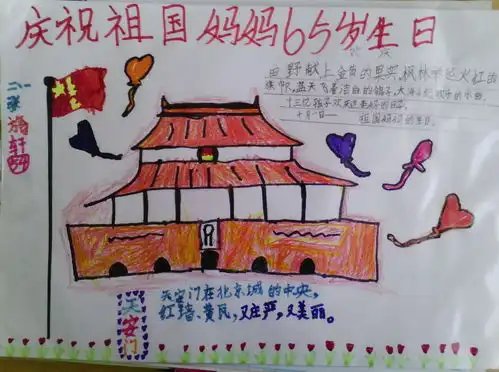 庆祝祖国妈妈65岁生日
田野献上金黄的果实,枫林举起火红的
旗帜,蓝天飞着洁白的鸽子,大海
十三亿孩子欢迎美好的日子。
十月一日——祖国妈妈的生日。
二.一
张
轩
天安门在北京城的中央,
红墙、黄瓦,又庄严,又美丽。
天安门